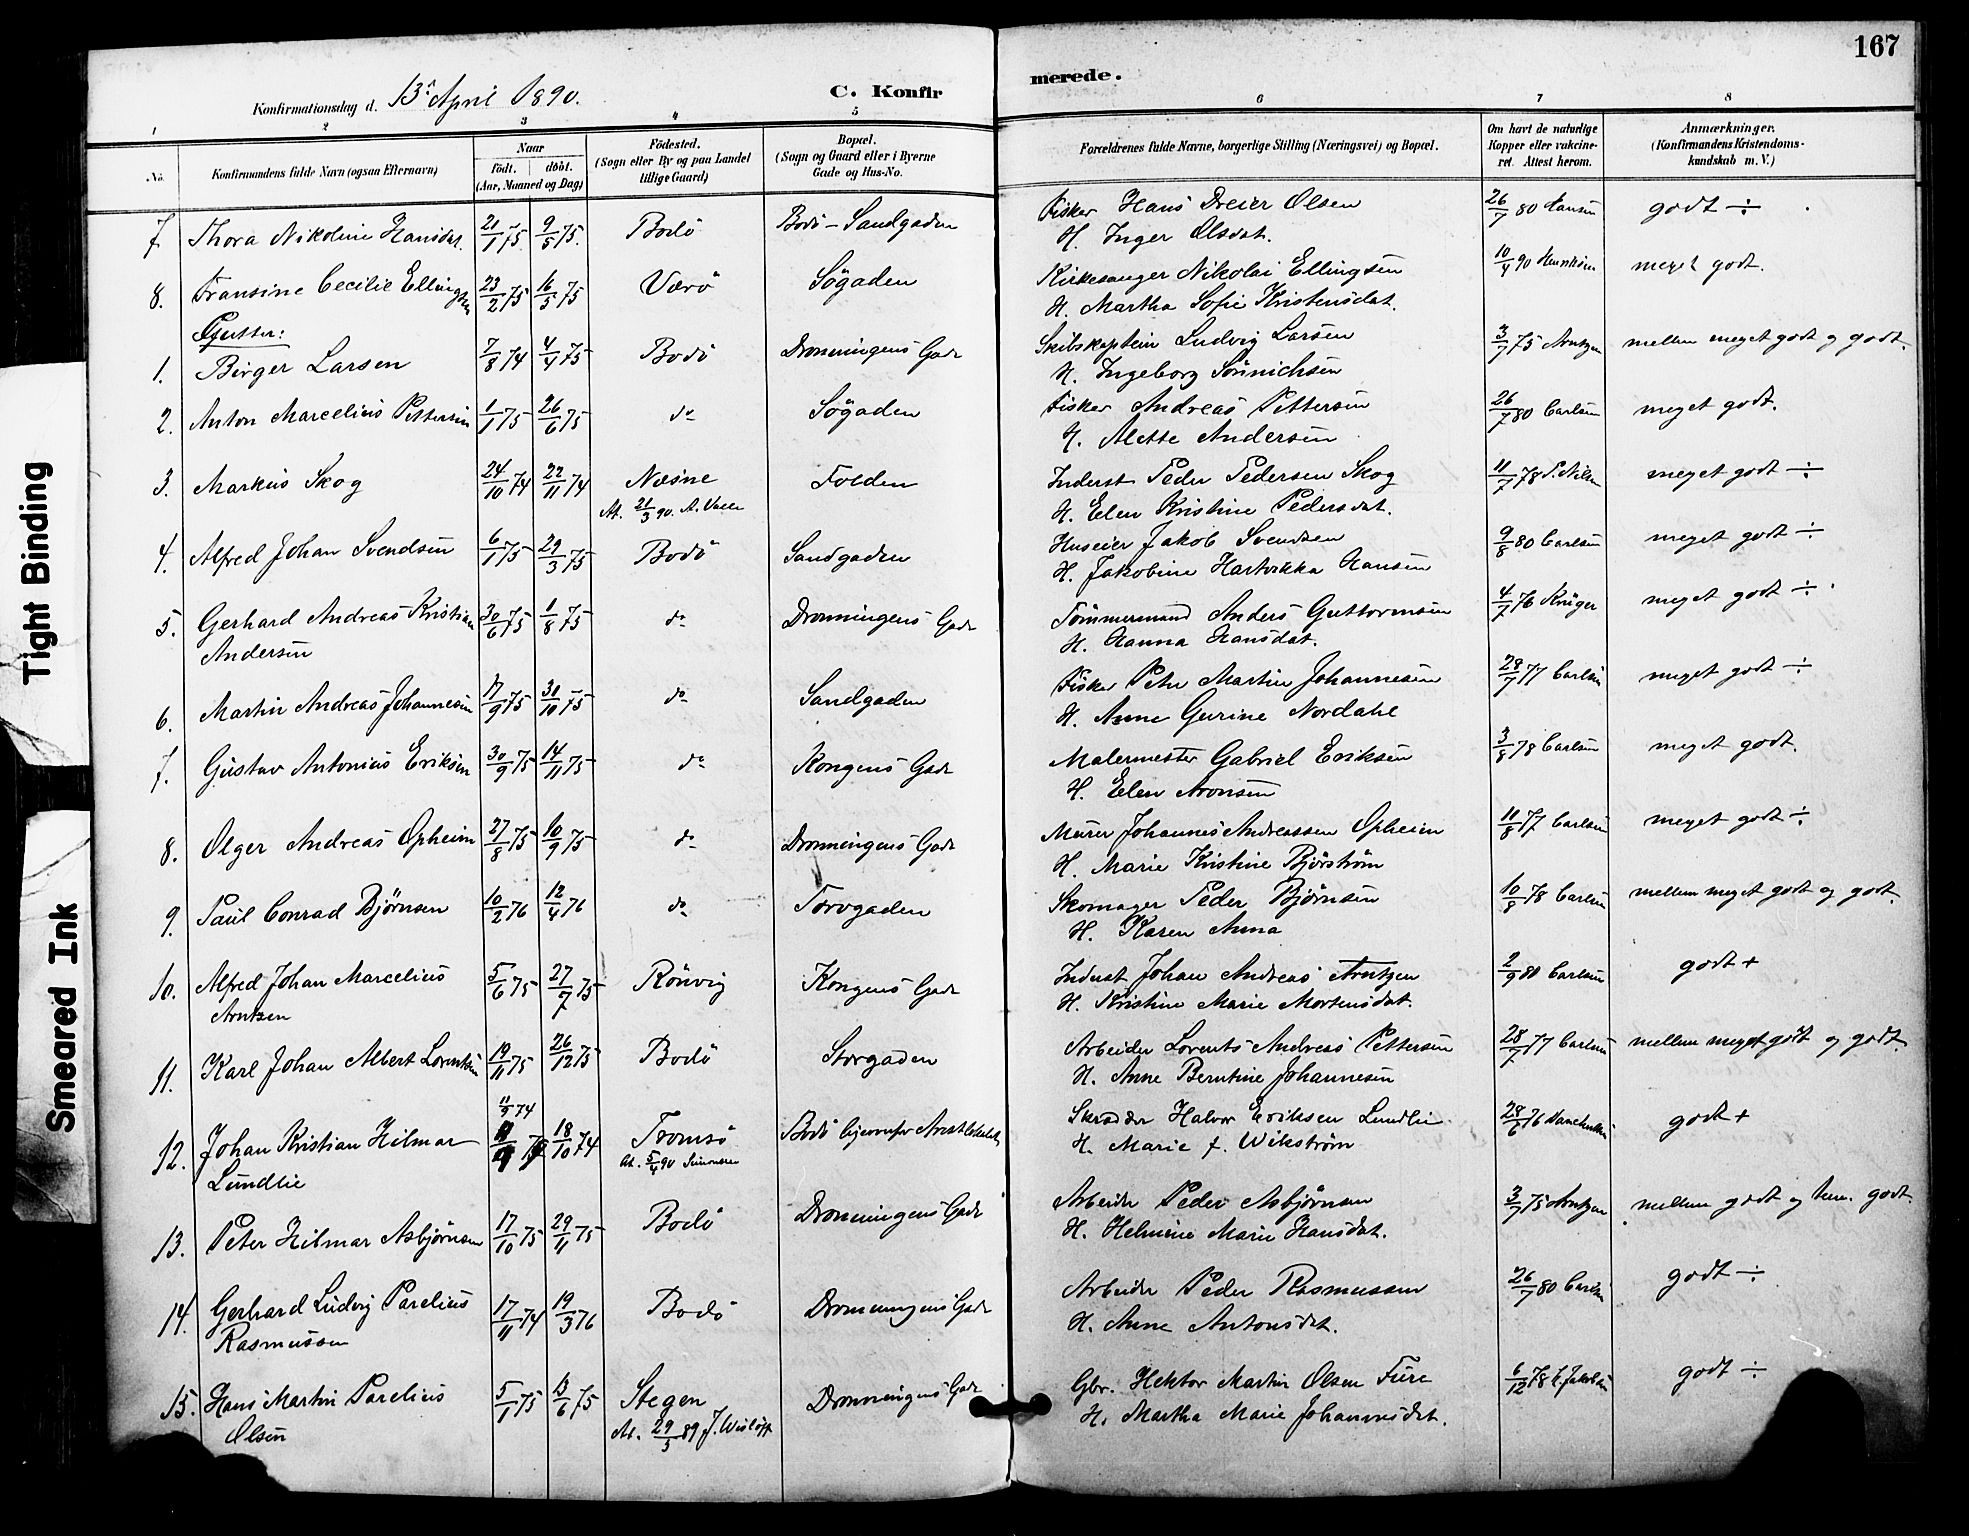 167
Konfirmationsdag d. 13de April 1890.
C. Konfir
merede.
1 2 3 4 5 6 7 8
No.
Konfirmandens fulde Navn (ogsaa Efternavn)
Naar
født. døbt.
(Aar, Maaned og Dag)
Fødested.
(Sogn eller By og paa Landet
tillige Gaard)
Bopæl.
(Sogn og Gaard eller i Byerne
Gade og Hus-No.
Forældrenes fulde Navne, borgerlige Stilling (Næringsvei) og Bopæl.
Om havt de naturlige
Kopper eller vakcine-
ret. Attest herom.
Anmærkninger.
(Konfirmandens Kristendoms-
kundskab m. V.)
7. Thora Nikoline Hansdat. 21/1 75. 9/5 75. Bodö Bodö - Sandgaden Fisker Hans Dreier Olsen 26/7 80 Hansen godt ÷
H. Inger Olsdat.
8. Fransine Cecilie Ellingsen 23/2 75 16/5 75 Værö Sögaden Kirkesanger Nikolai Ellingsen 10/4 90 meget godt.
H. Martha Sofie Kristensdat.
Gutter:
1. Birger Larsen 7/8 74 4/4 75 Bodö Dronningens Gade Skibskaptein Ludvig Larsen 3/7 75 Arntzen mellem meget godt og godt.
H. Ingeborg Sönnichsen
2. Anton Marcelius Pettersen 1/1 75 26/6 75 do Sögaden Fisker Andreas Pettersen 26/7 80 Carlsen meget godt.
H. Alette Andersen
3. Markus Skog 24/10 74 22/11 74 Næsne Folden Inderst Peder Pedersen Skog 11/7 78 P. Nilsen meget godt ÷
At. 21/3 90. A. H. Elen Kristine Pedersdat.
4. Alfred Johan Svendsen 6/1 75 29/3 75 Bodö Sandgaden Huseier Jakob Svendsen 9/8 80 Carlsen meget godt ÷
H. Jakobine Hartvikka Hansen
5. Gerhard Andreas Kristian 30/6 75 1/8 75 do Dronningens Gade Tömmermand Anders Guttormsen 4/7 76 Krüger meget godt ÷
Andersen H. Hanna Hansdat.
6. Martin Andreas Johannesen 17/9 75 30/10 75 do Sandgaden Fisker Peter Martin Johannesen 28/7 77 Carlsen meget godt ÷
H. Anne Gurine Nordahl
7. Gustav Antonius Eriksen 30/9 75 14/11 75 do Kongens Gade Malermester Gabriel Eriksen 3/8 78 Carlsen meget godt.
H. Elen Aronsen
8. Olger Andreas Opheim 27/8 75 10/9 75 do Dronningens Gade Murer Johannes Andreassen Opheim 11/8 77 Carlsen meget godt ÷
H. Marie Kristine Björström
9. Paul Conrad Bjørnsen 10/2 76 12/4 76 do Torvgaden Skomager Peder Bjørnsen 10/8 78 Carlsen mellem meget godt og godt.
H. Karen Anna
10. Alfred Johan Marcelius 5/6 75 27/7 75 Rönvig Kongens Gade Inderst Johan Andreas Arntzen 2/9 80 Carlsen godt +
Arntzen H. Kristine Marie Mortensdat.
11. Karl Johan Albert Lorentsen 19/11 75 26/12 75 Bodö Storgaden Arbeider Lorents Andreas Pettersen 28/7 77 Carlsen mellem meget godt og godt.
H. Anne Berntine Johannesen
11/9 74
12. Johan Kristian Hilmar 18/10 74 Tromsö Bodö Skrædder Halvor Eriksen Lundlie 28/6 76 godt +
Lundlie At. 5/4 90 Simonsen H. Marie f. Wikström
13. Peter Hilmar Asbjørnsen 17/10 75 29/11 75 Bodö Dronningens Gade Arbeider Peder Asbjørnsen 3/7 75 Arntzen mellem godt og tem. godt.
H. Helmine Marie Hansdat.
14. Gerhard Ludvig Parelius 17/11 74 19/3 76 Bodö Dronningens Gade Arbeider Peder Rasmussen 26/7 80 Carlsen godt ÷
Rasmussen H. Anne Antonsdat.
15. Hans Martin Parelius 5/1 75 13/6 75 Stegen Dronningens Gade Gbr. Hektor Martin Olsen Fure 6/12 78 godt ÷
Olsen At. 29/3 89 J. Wislöff H. Martha Marie Johannesdat.
Tight Binding
Smeared Ink